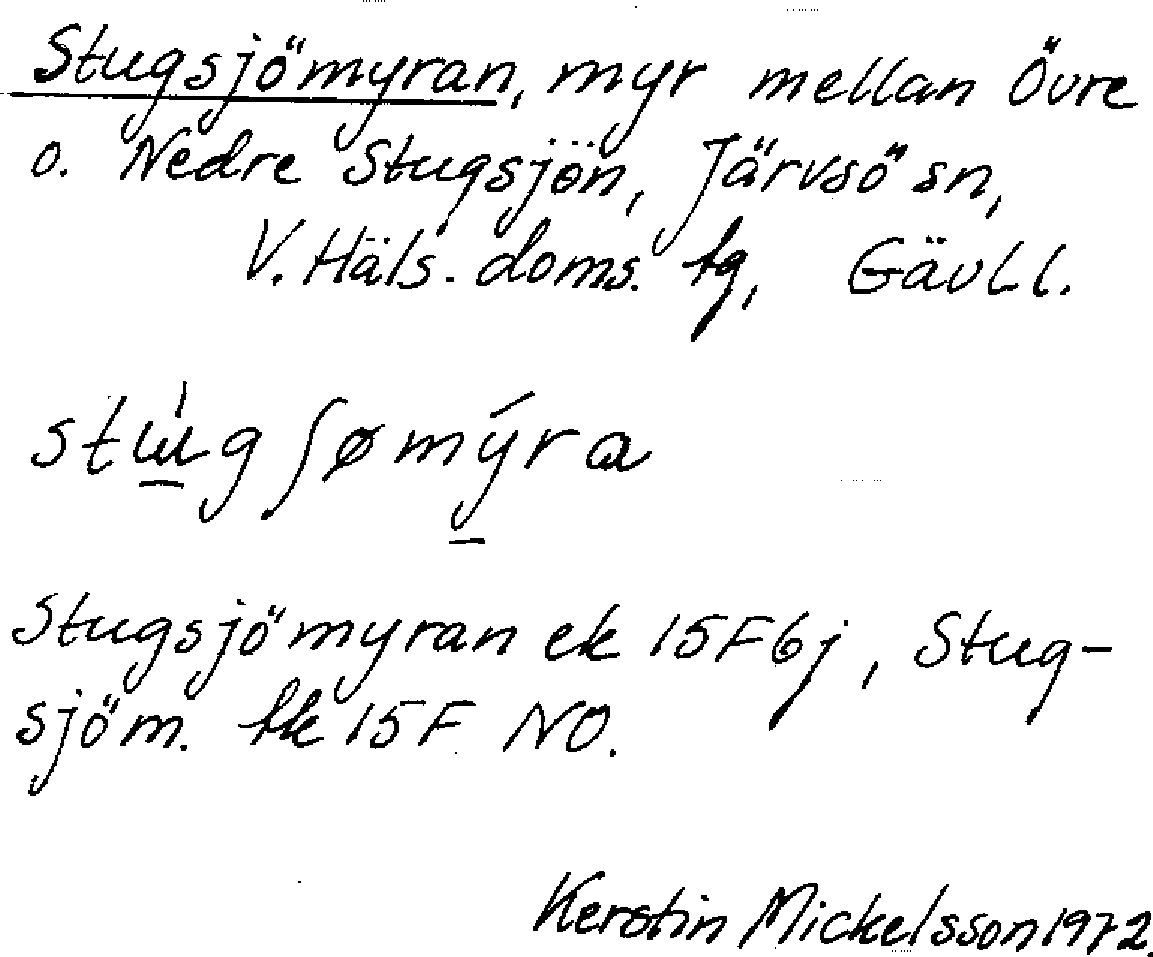 Stugsjömyran, myr mellan Övre
o. Nedre Stugsjön, Järvsö sn,
V. Häls. doms. tg, Gävl l.
stɯ̲́gʃømý̲ra
Stugsjömyran ek 15F6j, Stug-
sjöm. tk 15F NO.
Kerstin Mickelsson 1972.